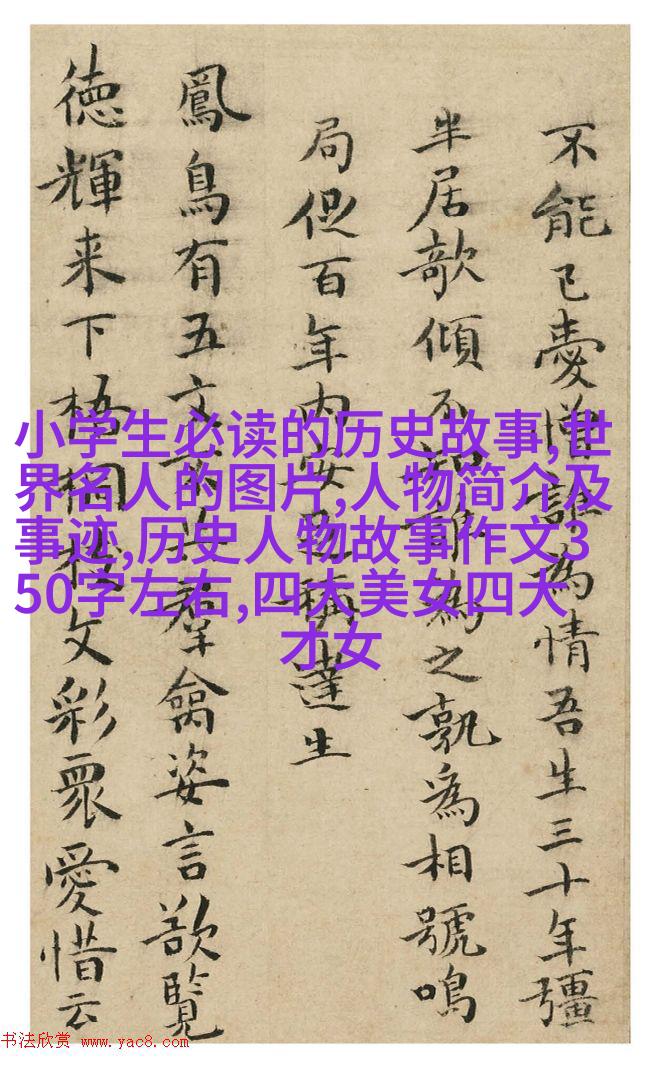 不能已憂憎詎為情吾生三十年彊
半居欹傾不知誰為之孰為相號鳴
局促百年内安取稱達生
鳳鳥有五文羣禽姿言欲覽
德輝来下梧桐枝文彩眾愛惜云
小学生必读的历史故事,世
界名人的图片,人物简介及
事迹,历史人物故事作文3
50字左右,四大美女四大
才女
书法欣赏 www.yac8.com